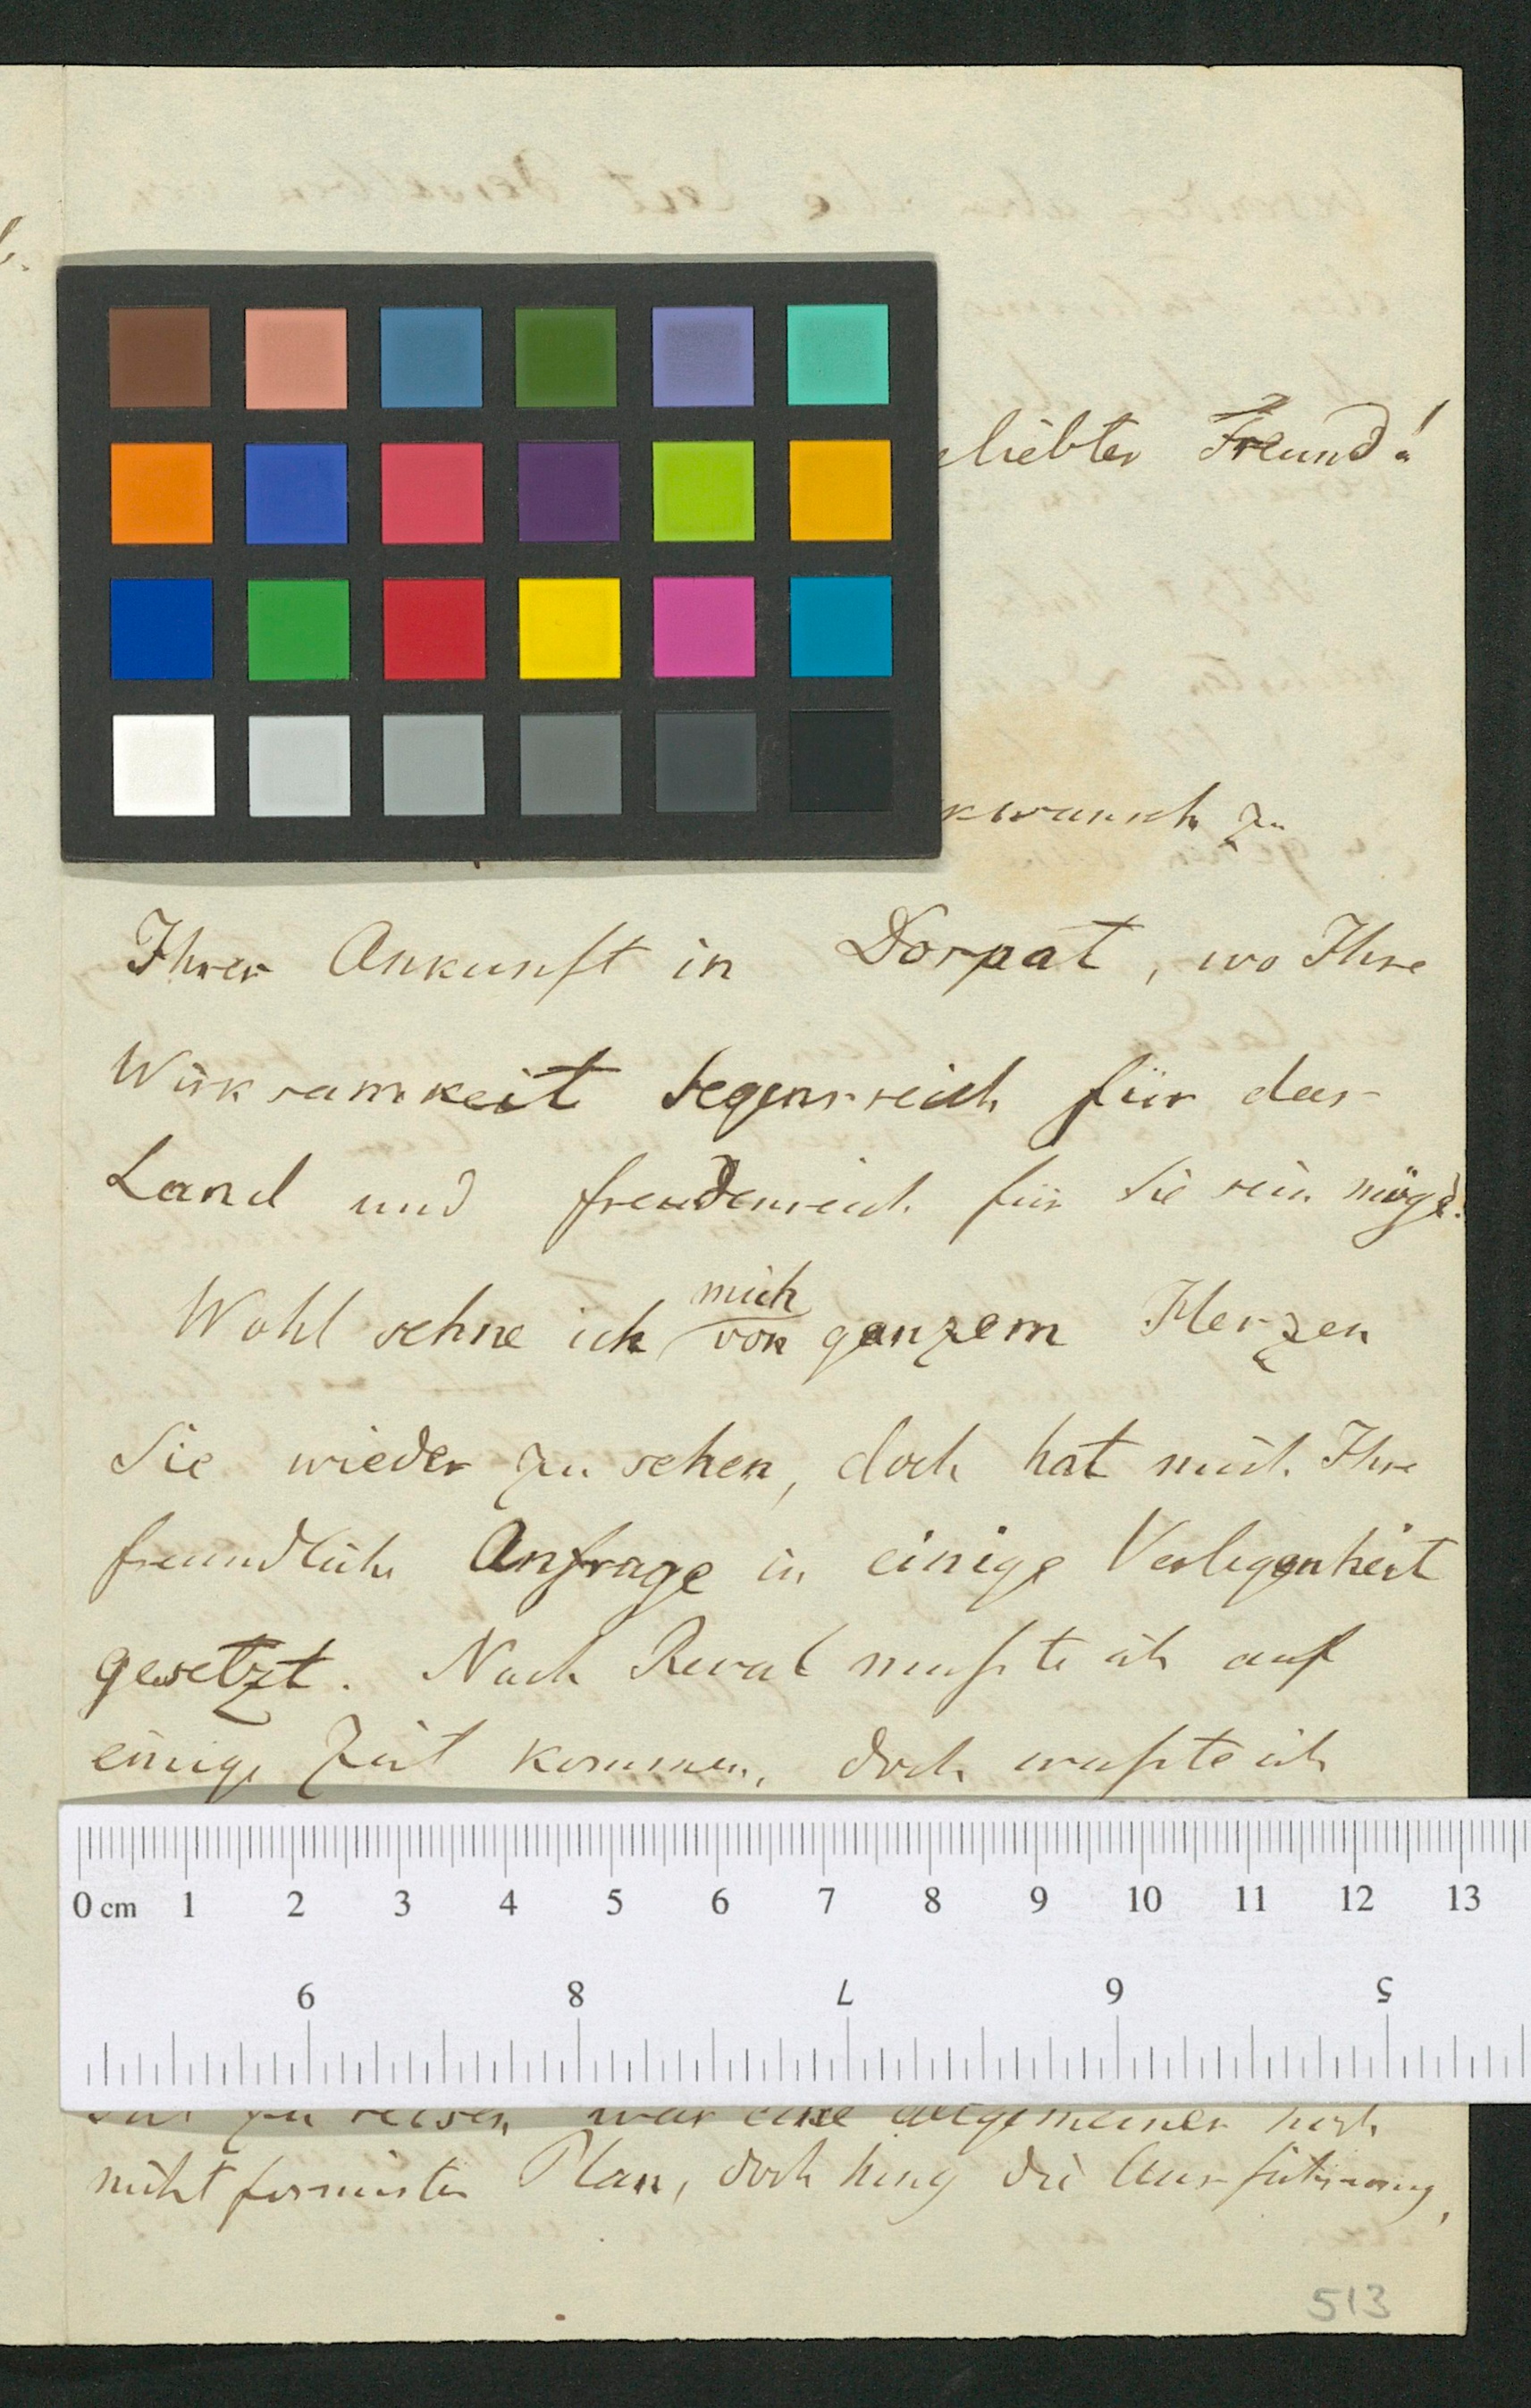 liebter Freund!
kwunsch zu
Ihrer Ankunft in Dorpat, wo Ihre
Wirksamkeit segensreich für das
Land und freudenreich für Sie sein möge.
mich
Wohl sehne ich von ganzem Herzen
Sie wieder zu sehen, doch hat mich Ihre
freundliche Anfrage in einige Verlegenheit
gesetzt. Nach Reval mußte ich auf
einige Zeit kommen, doch wußte ich
0 cm 1 2 3 4 5 6 7 8 9 10 11 12 13
9 8 7 6 5
zu reisen war eine allgemeiner noch
nicht fixirter Plan, doch hing die Ausführung,
513